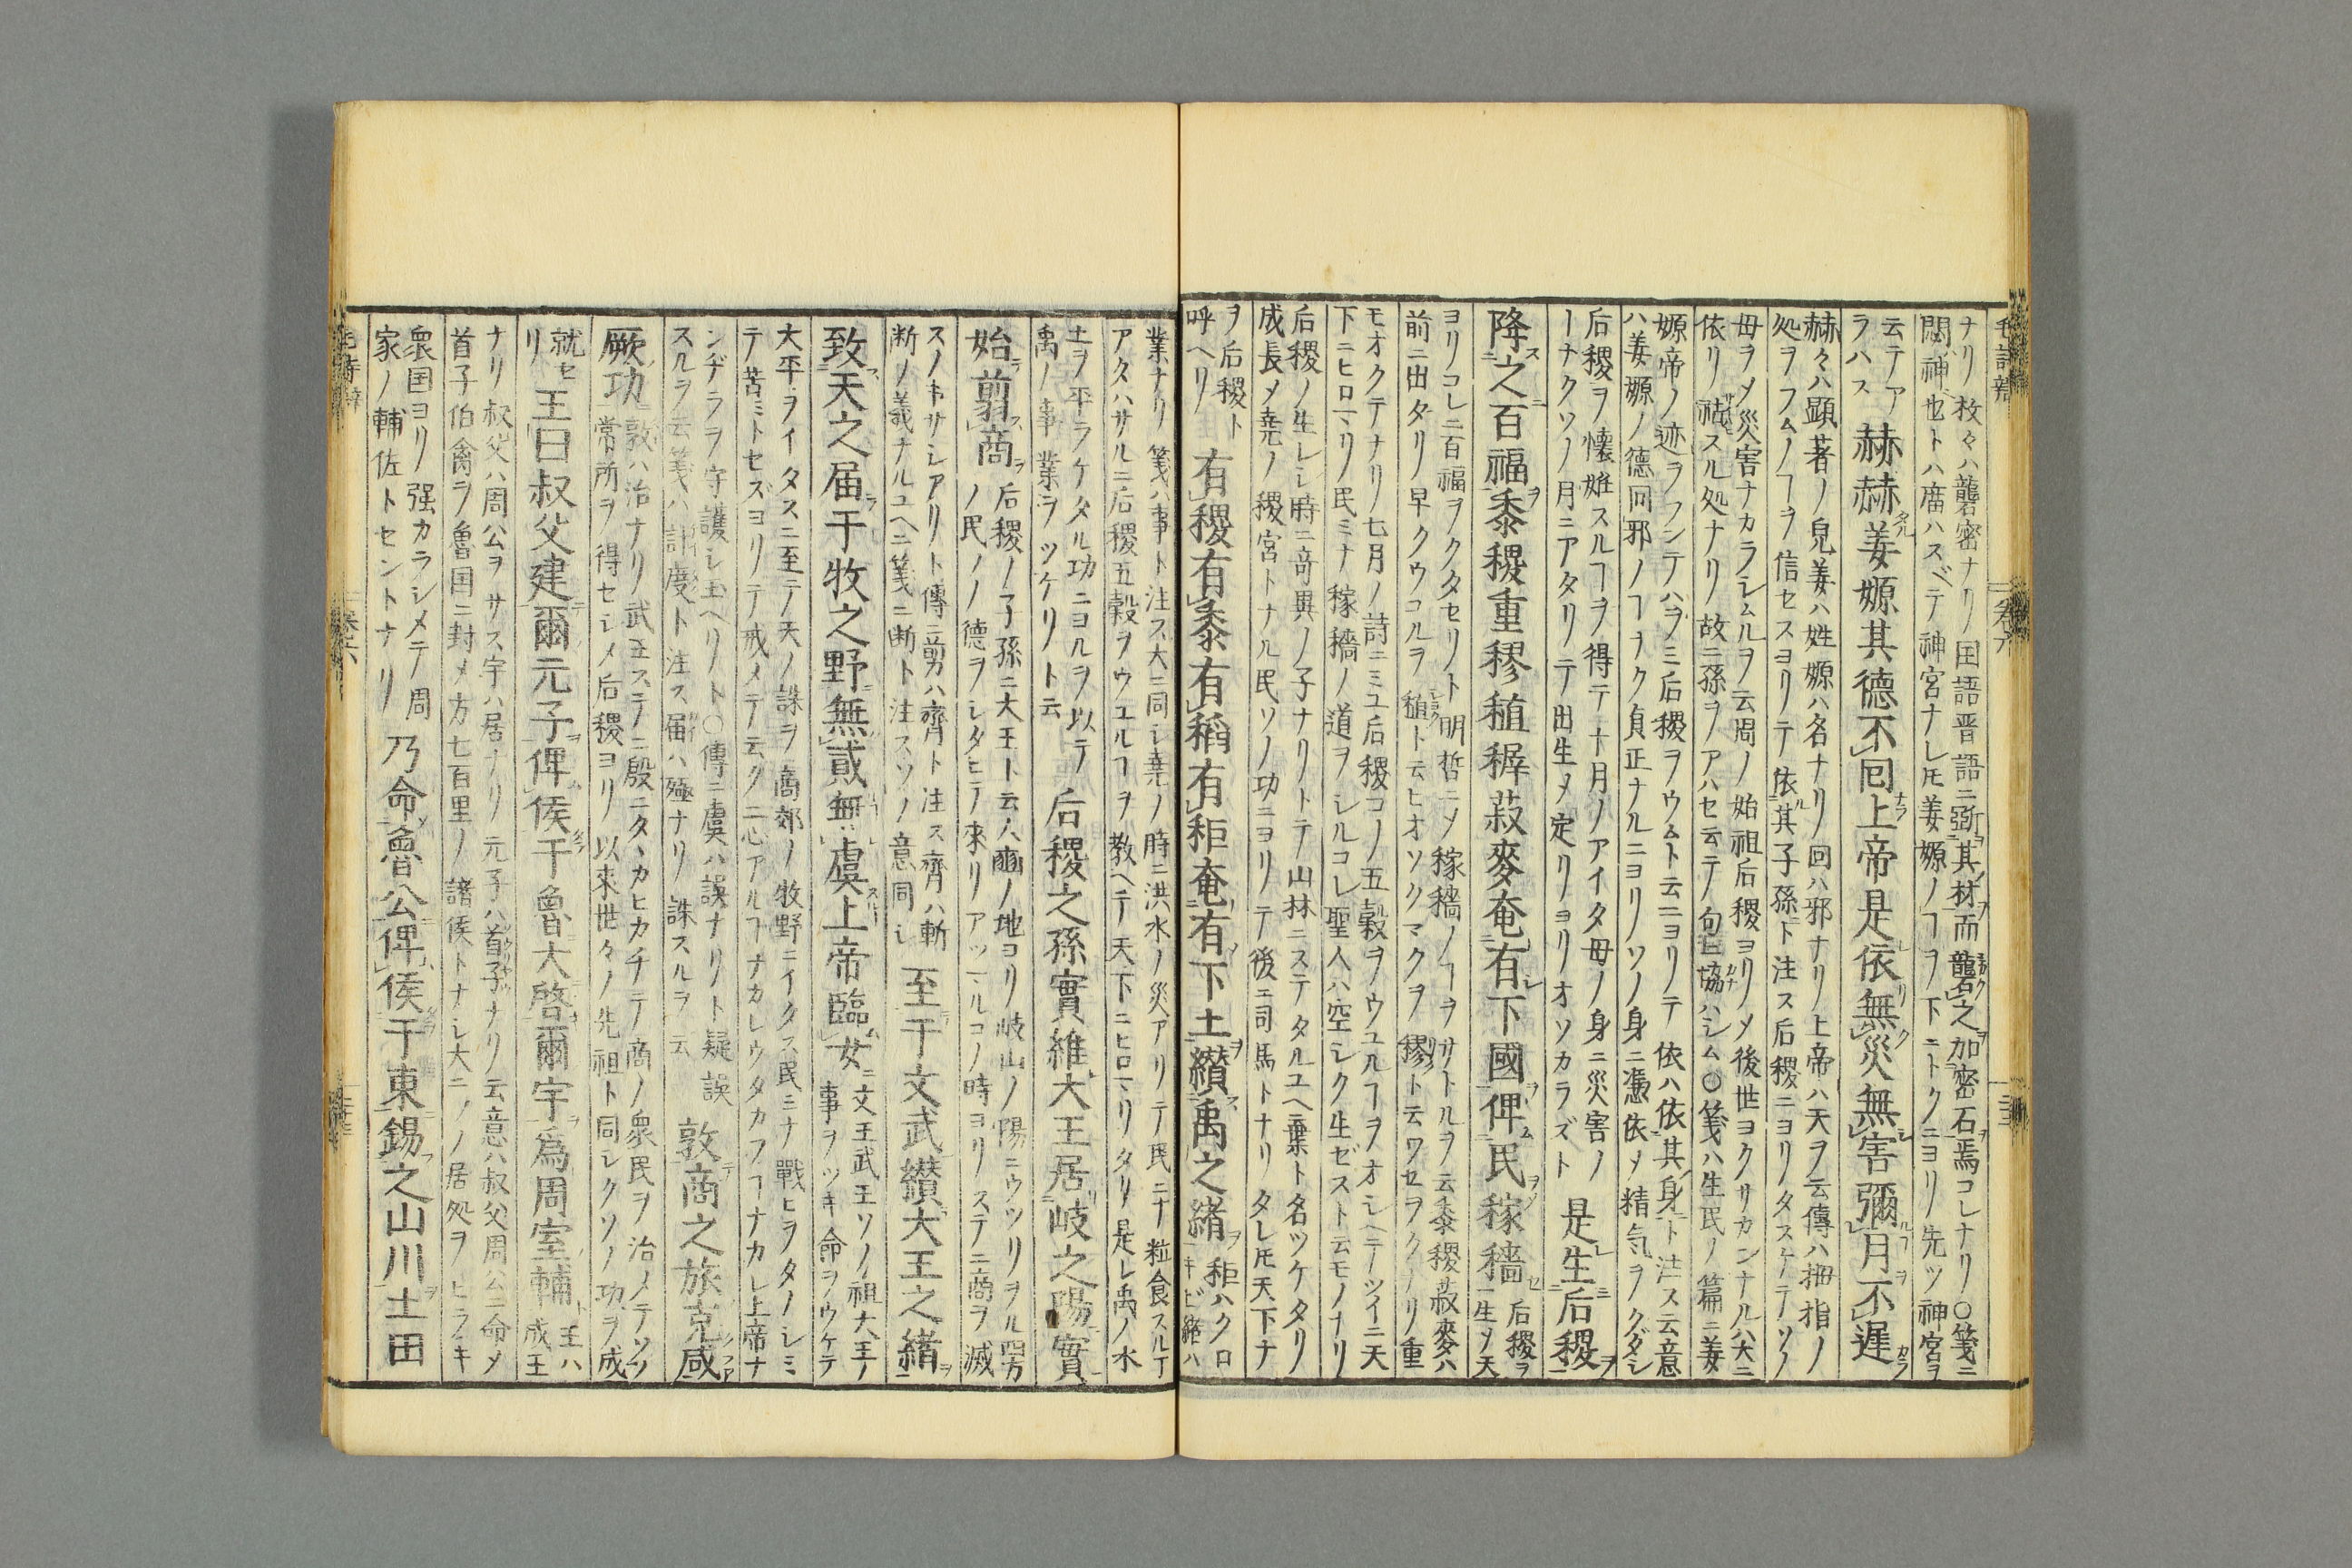 ナリ枚々ハ礱密ナリ国語晋語ニ斲其材而礱之加密石焉コレナリ〇箋ニ
閟神也トハ席ハスベテ神宮ナレ𪜈姜嫄ノヿヲ下ニトクニヨリ先ツ神宮ヲ
云テア
ラハス
赫赫姜嫄其德不回上帝是依無災無害彌月不遲
赫々ハ顕著ノ皃姜ハ姓嫄ハ名ナリ回ハ邪ナリ上帝ハ天ヲ云傳ハ拇指ノ
処ヲフムノヿヲ信セスヨリテ依其子孫ト注ス后稷ニヨリタスケテソノ
母ヲメ災害ナカラシムルヲ云周ノ始祖后稷ヨリメ後世ヨクサカンナルハ大ニ
依リ祐スル処ナリ故ニ孫ヲアハセ云テノ句ニ協ハシム〇箋ハ生民ノ篇ニ姜
嫄帝ノ迹ヲフンテハヲミ后稷ヲウムト云ニヨリテ依ハ依其身ト注ス云意
ハ姜嫄ノ德回邪ノヿナク貞正ナルニヨリソノ身ニ憑依メ精気ヲクダシ
后稷ヲ懐姙スルヿヲ得テ十月ノアイタ母ノ身ニ災害ノ
ーナクソノ月ニアタリテ出生メ定リヨリオソカラズト
是生后稷
降之百福黍稷重穋稙穉菽麥奄有下國俾民稼穡
后稷ヲ
生メ天
ヨリコレニ百福ヲクタセリト明哲ニメ稼穡ノヿヲサトルヲ云黍稷菽麥ハ
前ニ出タリ早クウコルヲ稙ト云ヒオソクマクヲ穋ト云ワセヲクナリ重
モオクテナリ七月ノ詩ニミユ后稷コノ五穀ヲウユルヿヲオシヘテツイニ天
下ニヒロマリ民ミナ稼穡ノ道ヲシルコレ聖人ハ空シク生ゼスト云モノナリ
后稷ノ生レシ時ニ奇異ノ子ナリトテ山林ニステタルユヘ棄ト名ツケタリ
成長メ堯ノ稷官トナル民ソノ功ニヨリテ後ニ司馬トナリタレ𪜈天下ナ
ヲ后稷ト
呼ヘリ
有稷有黍有稻有秬奄有下土纘禹之緒
秬ハクロ
キビ緒ハ
業ナリ箋ハ事ト注ス大ニ同シ堯ノ時ニ洪水ノ災アリテ民ニナ粒食スルヿ
アタハサルニ后稷五穀ヲウユルヿヲ教ヘテ天下ニヒロマリタリ是レ禹ノ水
土ヲ平ラケタル功ニヨルヲ以テ
禹ノ事業ヲツケリト云
后稷之孫實維大王居岐之陽實
始翦商
后稷ノ子孫ニ大王ト云人豳ノ地ヨリ岐山ノ陽ニウツリヲル四方
ノ民ソノ德ヲシタヒテ來リアツマルコノ時ヨリステニ商ヲ滅
スノキサシアリト傳ニ翦ハ齊ト注ス齊ハ斬
断ノ義ナルユヘニ箋ニ断ト注スソノ意同シ
至于文武纘大王之緒
致天之届于牧之野無貳無虞上帝臨女
文王武王ソノ祖大王ノ
事ヲツキ命ヲウケテ
大平ヲイタスニ至テ天ノ誅ヲ商郊ノ牧野ニイタス民ミナ戰ヒヲタノシミ
テ苦ミトセズヨリテ戒メテ云ク二心アルヿナカレウタカフヿナカレ上帝ナ
ンヂラヲ守護シ玉ヘリト〇傳ニ虞ハ誤ナリト疑誤
スルヲ云箋ハ計度ト注ス届ハ殛ナリ誅スルヲ云
敦商之旅克咸
厥功
敦ハ治ナリ武王ステニ殷ニタヽカヒカチテ商ノ衆民ヲ治メテソノ
常所ヲ得セシメ后稷ヨリ以来世々ノ先祖ト同シクソノ功ヲ成
就セ
リ
王曰叔父建爾元子俾侯于魯大啓爾宇爲周室輔
王ハ
成王
ナリ叔父ハ周公ヲサス宇ハ居ナリ元子ハ首子ナリ云意ハ叔父周公ニ命メ
首子伯禽ヲ魯国ニ封メ方七百里ノ諸侯トナシ大ニソノ居処ヲヒラキ
衆国ヨリ强カラシメテ周
家ノ輔佐トセントナリ
乃命魯公俾侯于東錫之山川土田